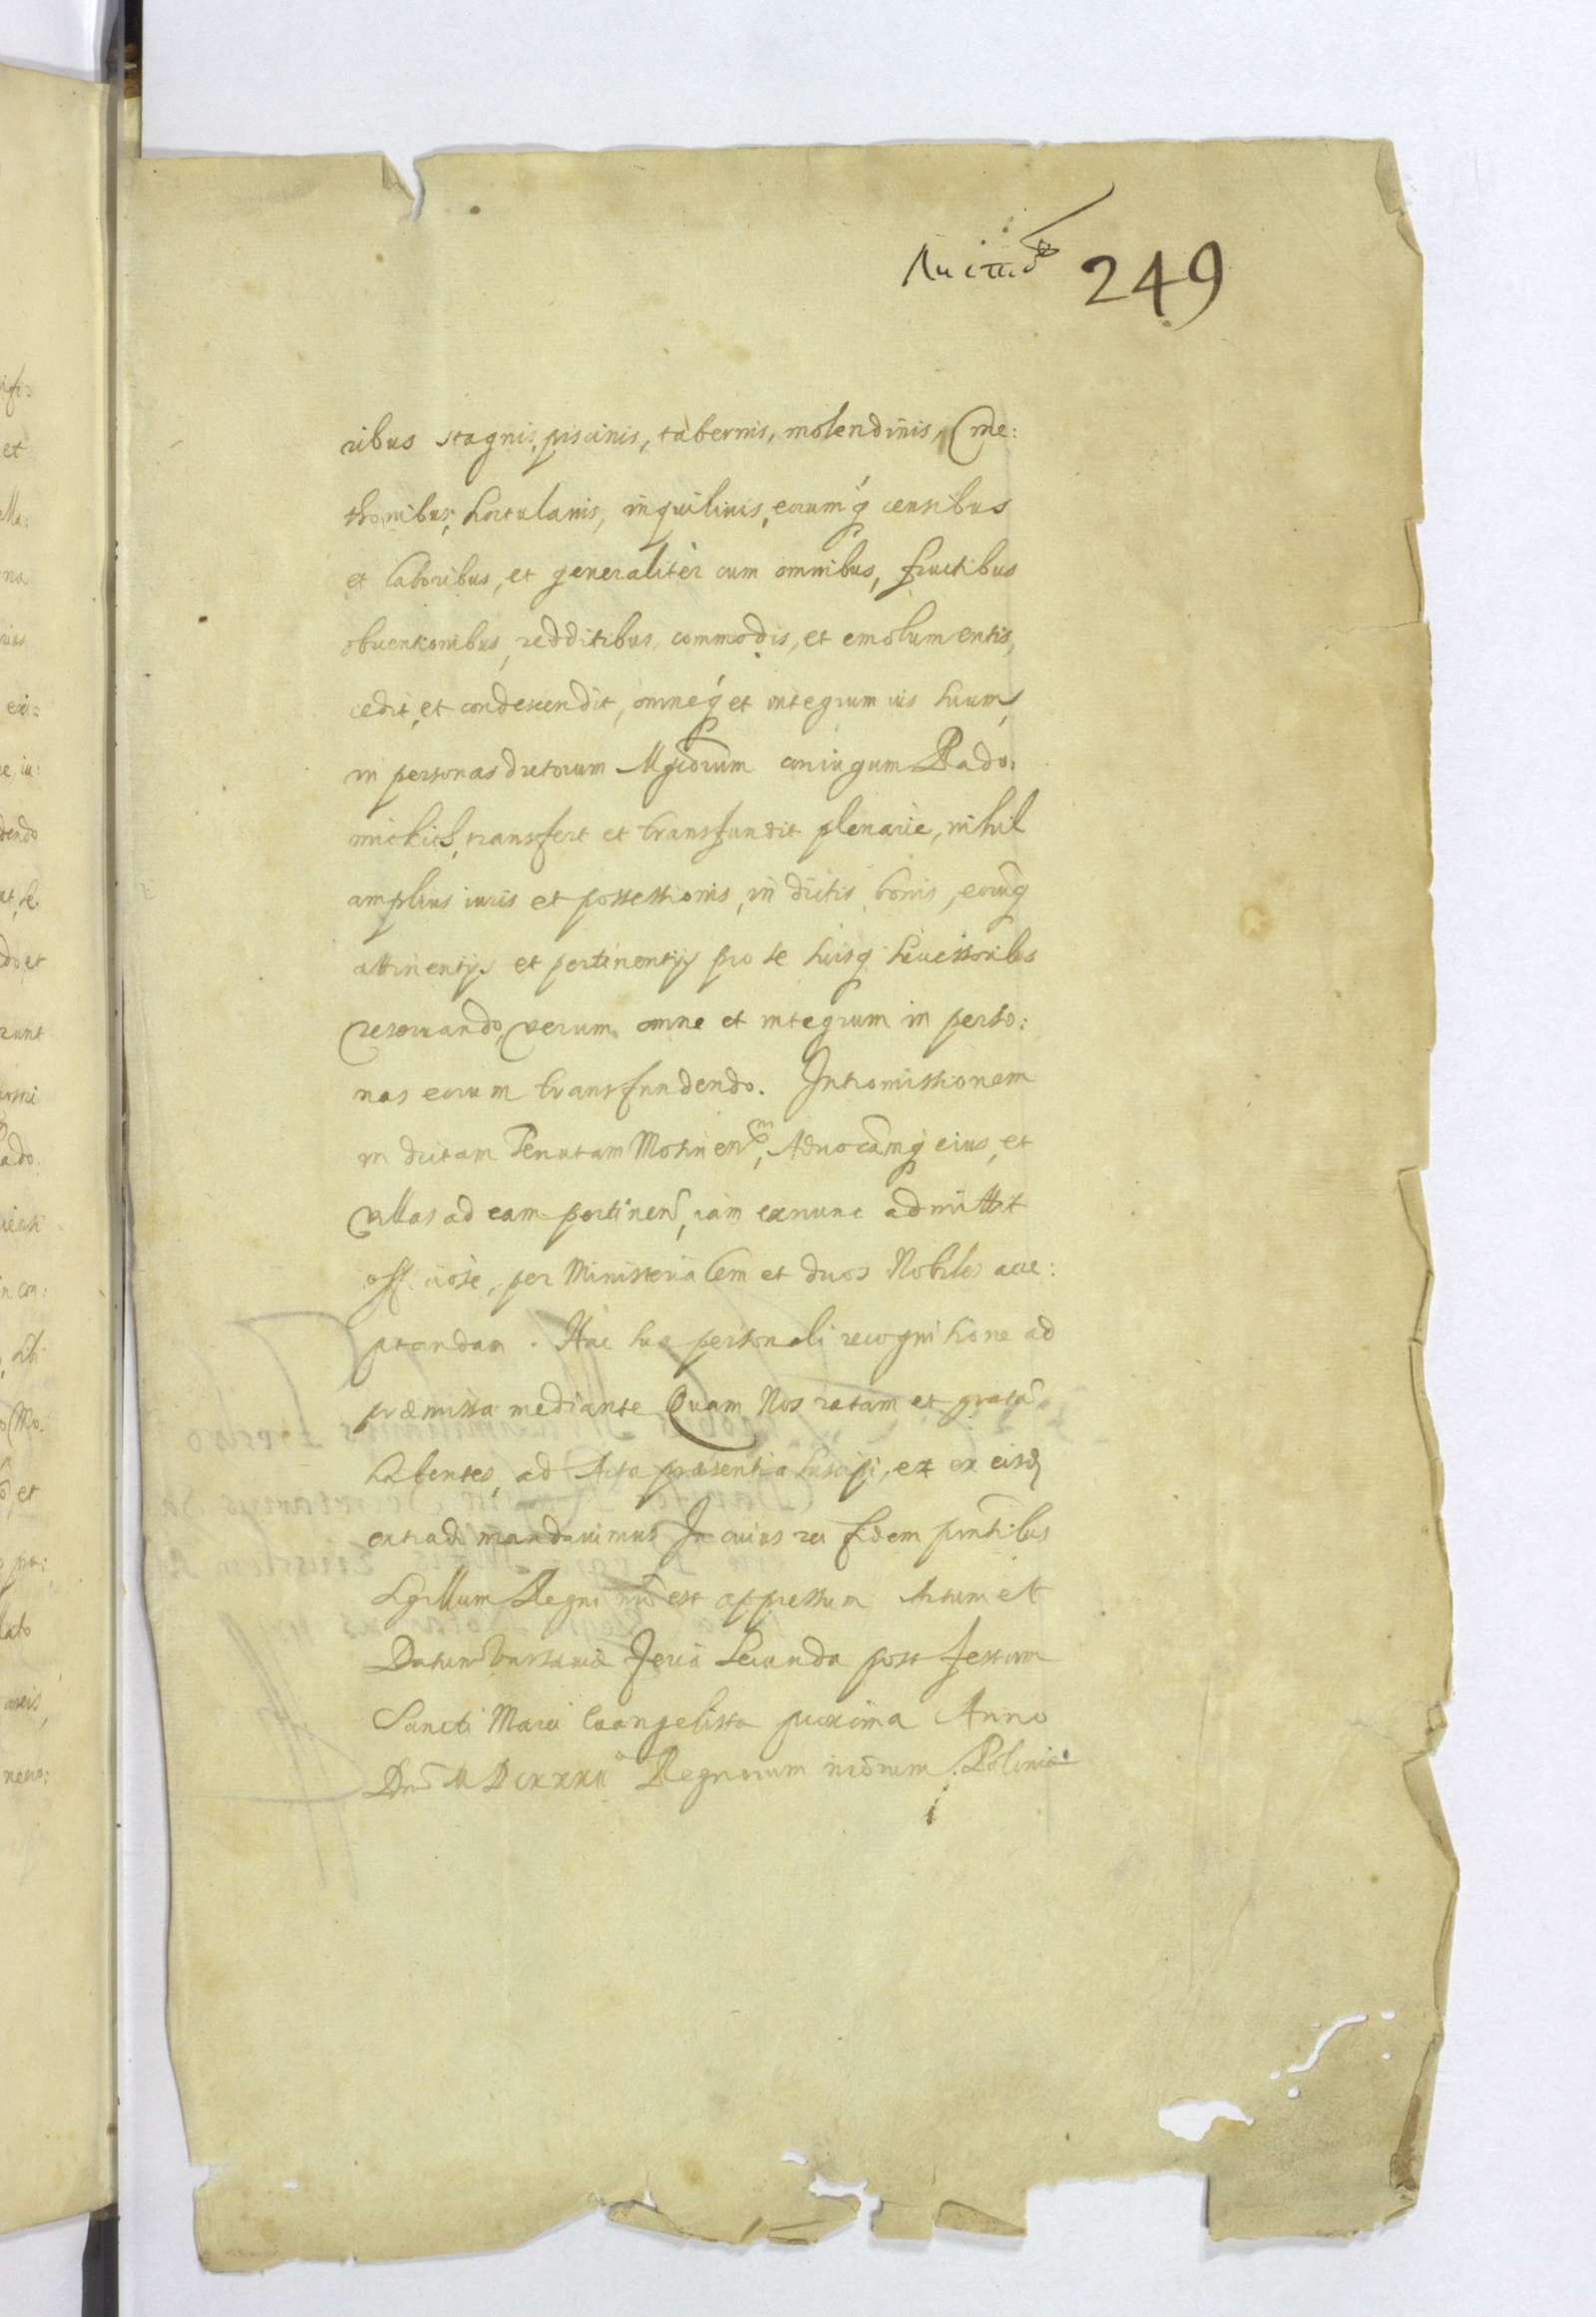 249
ribus stagnis, piscinis, tabernis, molendinis, Cme:
thonibus, hortulanis, inquilinis, eorumq censibus
et laboribus, et generaliter cum omnibus, fructibus
obuentionibus, redditibus, commodis, et emolumentis,
cedit, et condescendit, omneq et integrum ius suum,
in personas dictorum Mgcorum coniugum Rado:
mickich, transfert et transfundit plenarie, nihil
amplius iuris et possessionis, in dictis bonis, eorumq
attinentijs et pertinentijs pro se suisq successoribus
reseruando, verum omne et integrum in perso:
nas eorum transfundendo. Intromissionem
in dictam Tenutam, Aduocamq eius, et
villas ad eam pertinen, iam exnunc admittit
officiose, per Ministerialem et duos Nobiles acce:
ptandam. Hac sua personali recognitione ad
præmissa mediante Quam Nos ratam et gratam
habentes, ad Acta præsentia suscipi, et ex eisd
extradi mandauimus In cuius rei fidem pntibus
Sigillum Regni nrm est appressum Actum et
Datum Varsauiæ Feria Secunda post festum
Sancti Marci Euangelistæ proxima Anno
Dni MDCXXXII Regnorum nrorum Poloniæ